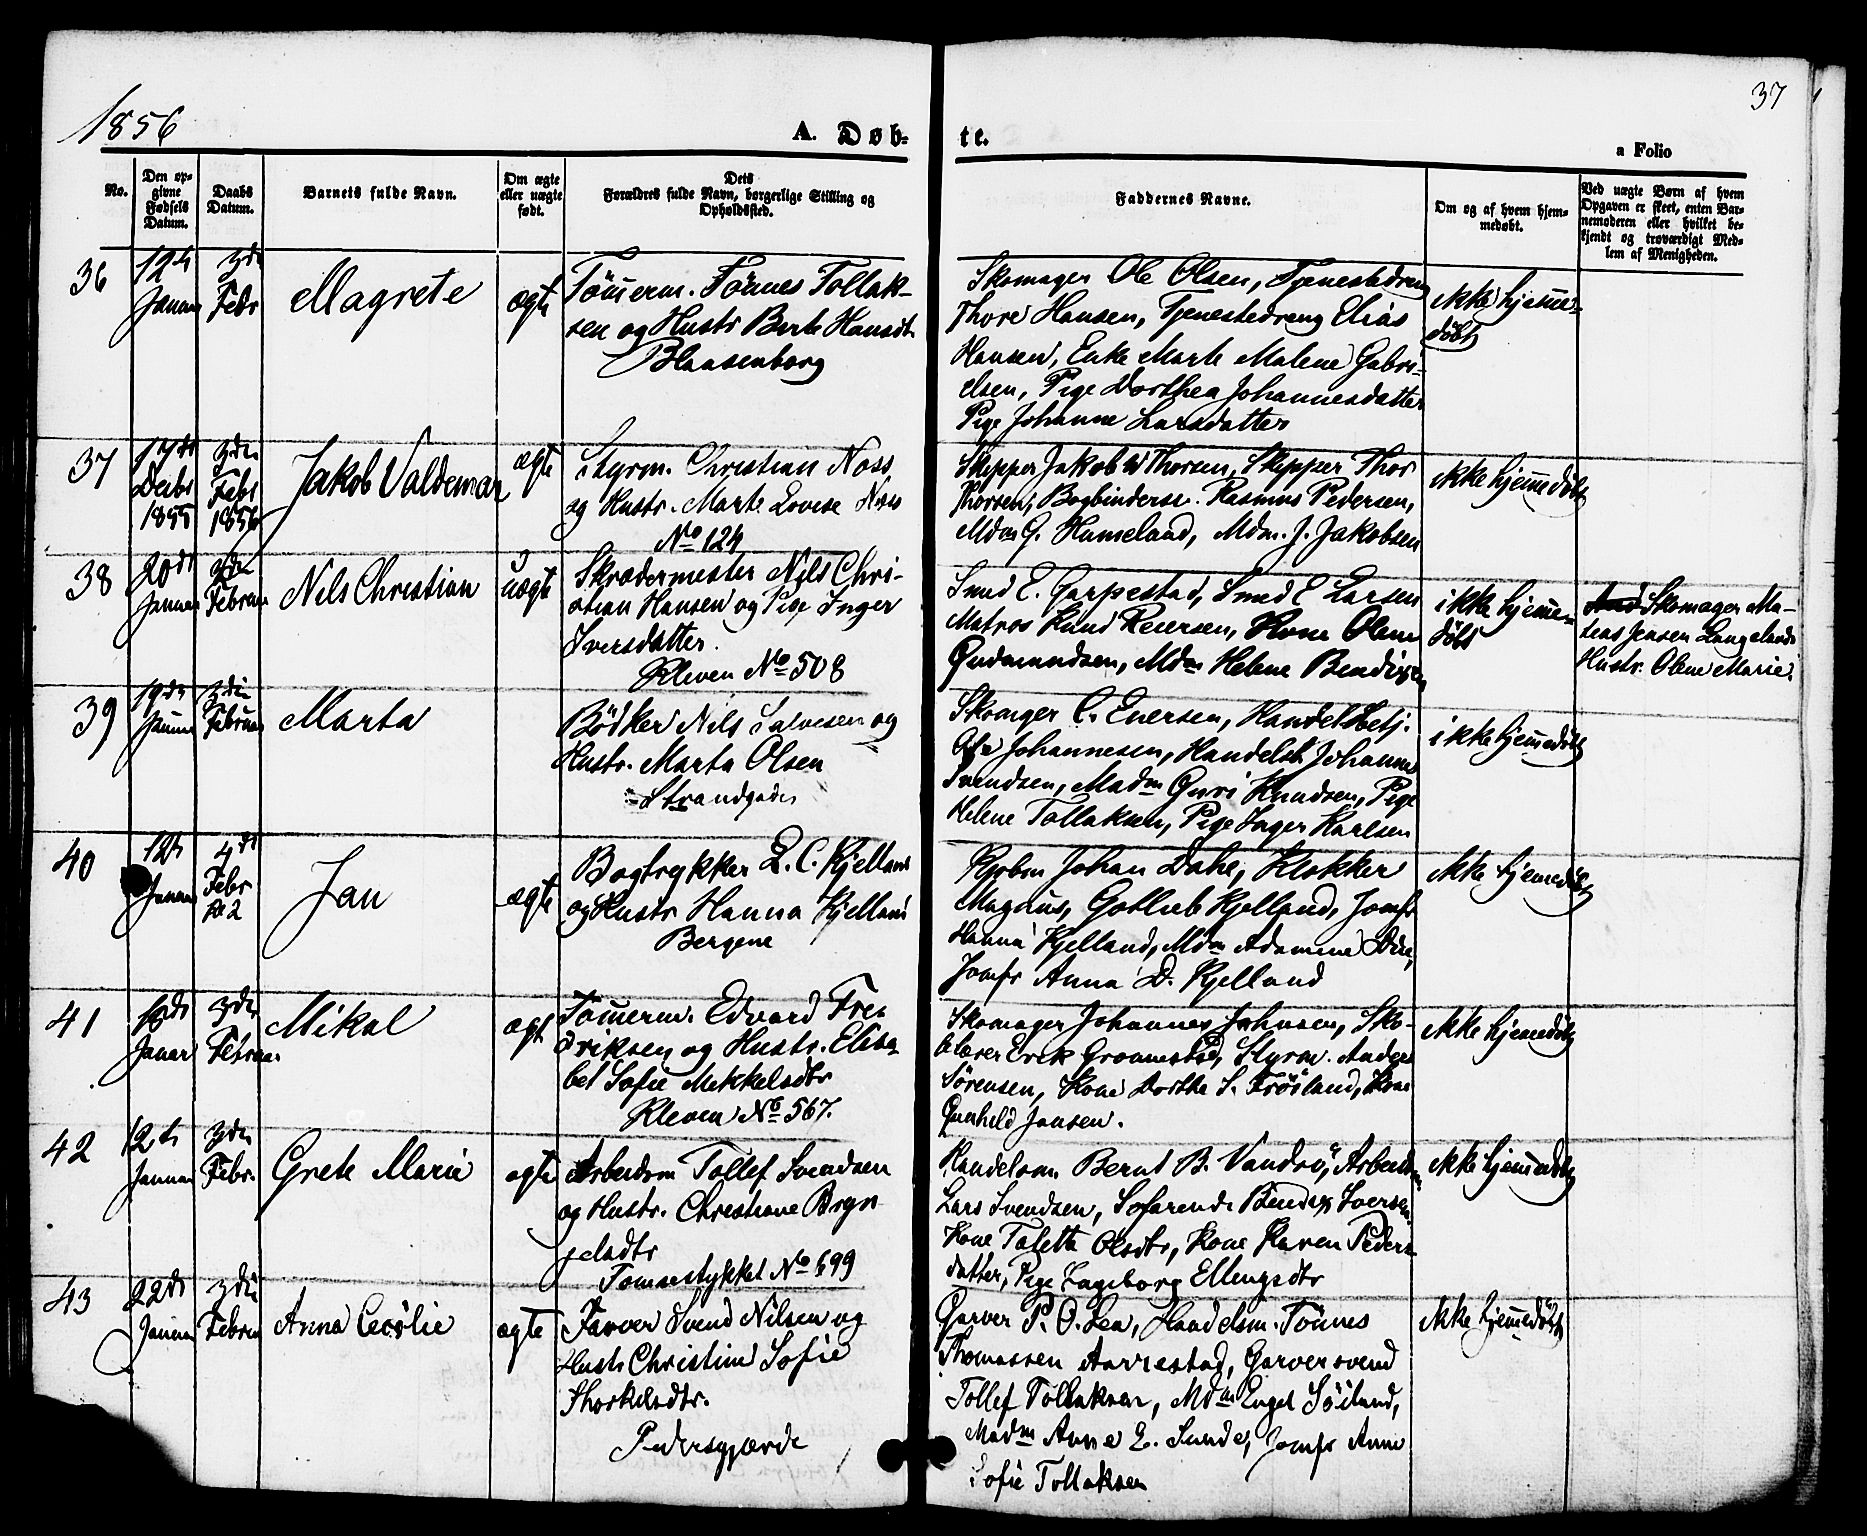 1856
A. Døb-
te.
37
a Folio
No.
Den op-
givne
Fødsels
Datum.
Daabs
Datum.
Barnets fulde Navn.
Om ægte
eller uægte
født.
Dets
Forældres fulde Navn, borgerlige Stilling og
Opholdssted.
Faddernes Navne.
Om og af hvem hjem-
medøbt.
Ved uægte Børn af hvem
Opgaven er skeet, enten Bar-
nemoderen eller hvilket be-
kjendt og troværdigt Med-
lem af Menigheden.
36
12te
Januar
3die
Febr
Magrete
ægte
Tömerm. Tönnes Tollak-
sen og Hustr Berte Hansdtr
Blaasenborg
Skomager Ole Olsen, Tjenestedreng
Thore Hansen, Tjenestedreng Elias
Hansen, Enke Marte Malene Gabri-
elsen, Pige Dorthea Johannesdatter
Pige Johanne Larsdatter
ikke hjemme-
döbt
37
17de
Decbr
1855
3die
Febr
1856
Jakob Valdemar
ægte
Styrm. Christian Noss
og Hustr. Marte Lovise Noss
No 124
Skipper Jakob W Thorsen, Skipper Thor
Thorsen, Bogbinders. Rasmus Pedersen,
Mdm G. Humeland, Mdm. J. Jakobsen
ikke hjemmedöbt
38
20de
Januar
3die
Februar
Nils Christian
uægte
Skrædermester Nils Chri-
stian Hansen og Pige Inger
Iversdatter.
Kleven No 508
Smed E. Garpestad, Smed E Larsen
Matros Knud Reiersen, Kone Olene
Gudmundsen, Mdm Helene Bendixen
ikke hjemme-
döbt
Skomager Ma-
tias Jensen Langelands
Hustr. Olene Marie.
39
19de
Januar
3die
Februar
Marta
Bödker Nils Salvesen og
Hustr. Marta Olsen
Strandgaden
Skomager C. Enersen, Handelsbetj.
Ole Johannesen, Handelsb. Johannes
Svendsen, Madm Guri Knudsen, Pige
Helene Tollaksen, Pige Inger Karlsen
ikke hjemmedöbt
40
12te
Januar
4de
Febr
Kl 2
Jan
ægte
Bogtrykker L. C. Kjelland
og Hustr Hanna Kjelland
Bergene
Kjöbm Johan Dahl, Klokker
Magnus, Gotlieb Kjelland, Jomfr
Hanna Kjelland, Mdm Adamine
Jomfr Anna D. Kjelland
ikke hjemmedöbt
41
18de
Januar
3die
Februar
Mikal
ægte
Tömerm. Edvard Fre-
driksen og Hustr. Elisa-
bet Sofie Mikkelsdtr
Kleven No 567.
Skomager Johannes Johnsen, Sko-
lelærer Erik Groomestad, Styrm. Anders
Sörensen, Kone Dorthe S. Fröiland, Kone
Gunhild Jansen.
ikke hjemmedöbt
42
12te
Januar
3die
Febr.
Grete Marie
ægte
Arbeidsm Tollef Svendsen
og Hustr. Christiane Bryn-
jelsdtr
Tomsestykket No 699
Handelsm. Bernt B. Vandsö, Arbeidsm.
Lars Svendsen, Sofarende Bendix Iversen
Kone Taletta Olsdtr, Kone Karen Peders-
datter, Pige Ingeborg Ellingsdtr
ikke hjemmedöbt
43
22de
Januar
3die
Februar
Anna Cecilie
ægte
Farver Svend Nilsen og
Hustr Christine Sofie
Thorkelsdtr.
Pedersgjærde
Garver P. O. Lea, Handelsm. Tönnes
Thomassen Aarrestad, Garversvend
Tollef Tollaksen, Mdm Engel Söiland,
Madm Anne E. Sunde, Jomfr Anne
Sofie Tollaksen
ikke hjemmedöbt